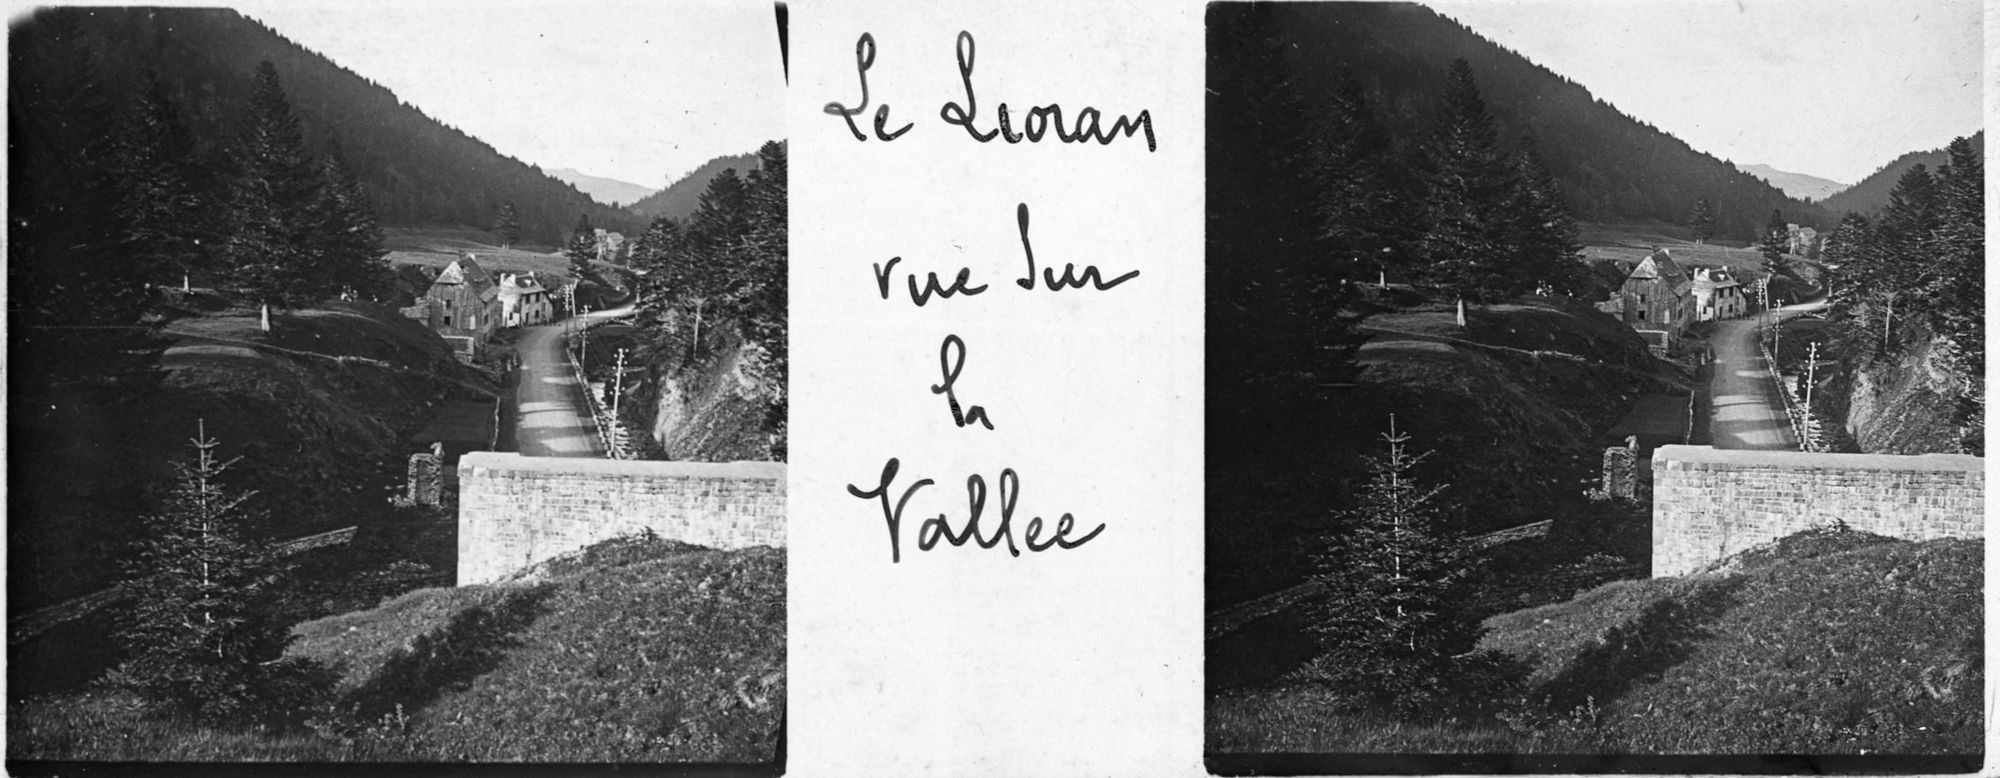 Le Lioran
vue sur
la
Vallee